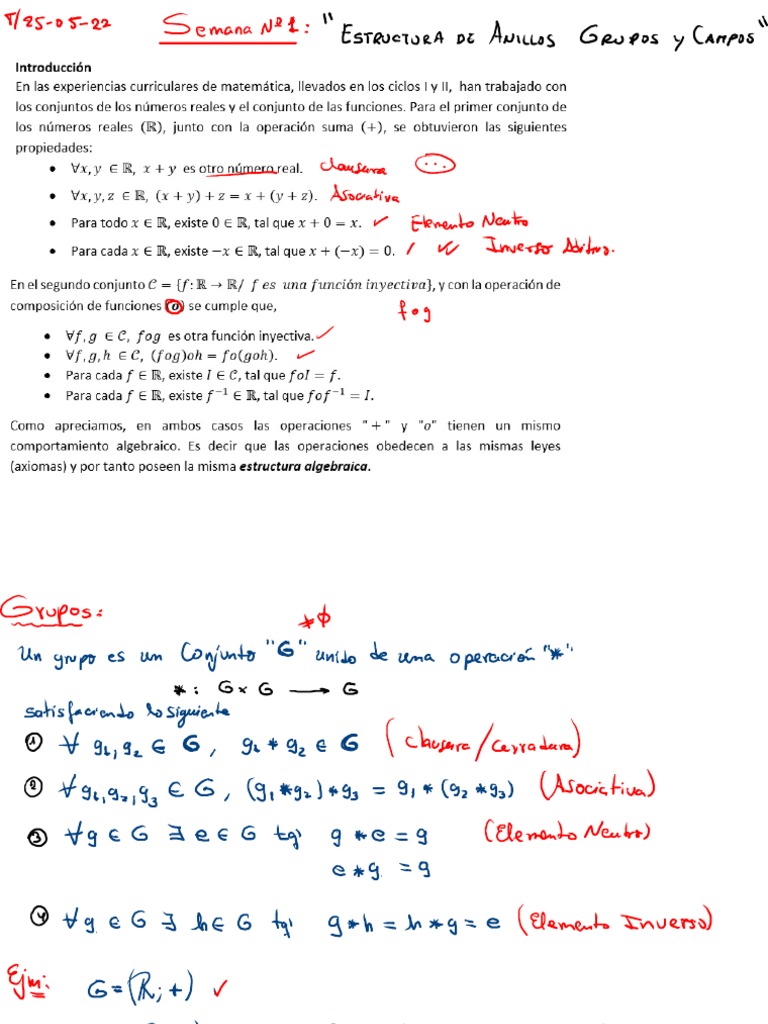 T/25-05-22 Semana Nº1: "Estructura de Anillos Grupos y Campos"
Introducción
En las experiencias curriculares de matemática, llevados en los ciclos I y II, han trabajado con
los conjuntos de los números reales y el conjunto de las funciones. Para el primer conjunto de
los números reales (ℝ), junto con la operación suma (+), se obtuvieron las siguientes
propiedades:
• ∀x, y ∈ ℝ, x + y es otro número real. Clausura (...)
• ∀x, y, z ∈ ℝ, (x + y) + z = x + (y + z). Asociativa
• Para todo x ∈ ℝ, existe 0 ∈ ℝ, tal que x + 0 = x. ✓ Elemento Neutro
• Para cada x ∈ ℝ, existe −x ∈ ℝ, tal que x + (−x) = 0. Inverso Aditivo.
En el segundo conjunto 𝒞 = {f: ℝ → ℝ/ f es una función inyectiva}, y con la operación de
composición de funciones (o) se cumple que, fog
• ∀f, g ∈ 𝒞, fog es otra función inyectiva. ✓
• ∀f, g, h ∈ 𝒞, (fog)oh = fo(goh). ✓
• Para cada f ∈ ℝ, existe I ∈ 𝒞, tal que foI = f.
• Para cada f ∈ ℝ, existe f⁻¹ ∈ ℝ, tal que fof⁻¹ = I.
Como apreciamos, en ambos casos las operaciones "+" y "o" tienen un mismo
comportamiento algebraico. Es decir que las operaciones obedecen a las mismas leyes
(axiomas) y por tanto poseen la misma estructura algebraica.
Grupos:
*ϕ
Un grupo es un Conjunto "G" unido de una operación "*"
*: G x G → G
satisfaciendo lo siguiente
① ∀ g₁, g₂ ∈ G, g₁ * g₂ ∈ G (Clausura/Cerradura)
② ∀ g₁, g₂, g₃ ∈ G, (g₁ * g₂) * g₃ = g₁ * (g₂ * g₃) (Asociativa)
③ ∀ g ∈ G ∃ e ∈ G tq' g * e = g (Elemento Neutro)
e * g = g
④ ∀ g ∈ G ∃ h ∈ G tq' g * h = h * g = e (Elemento Inverso)
Ejm: G = (ℝ; +) ✓